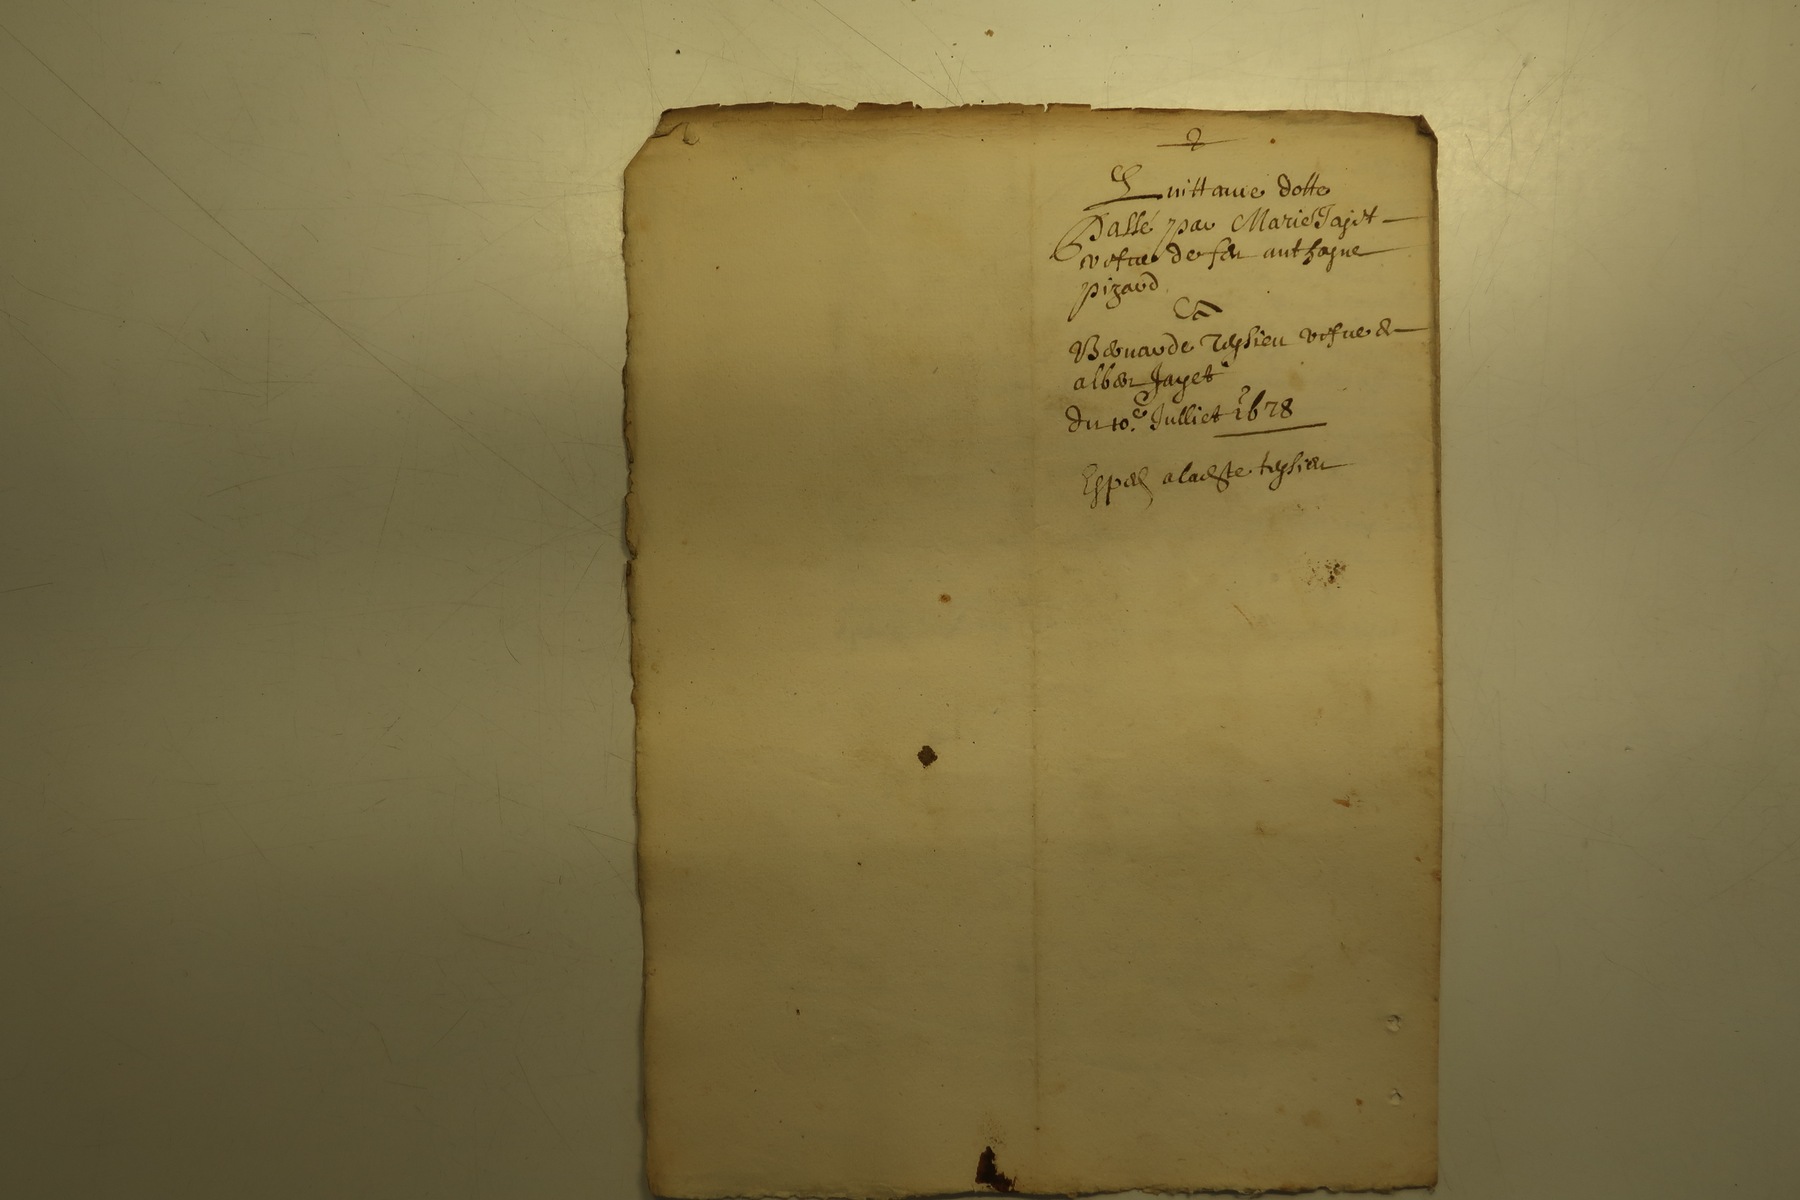 2
Quittance dotte
Passé par Marie Jajet
vefue de feu anthoyne
pizard
Et a
Bernarde teysieu vefue de
alber Jayet
du 10.e Julliet 1678
Exped a ladite teysieu